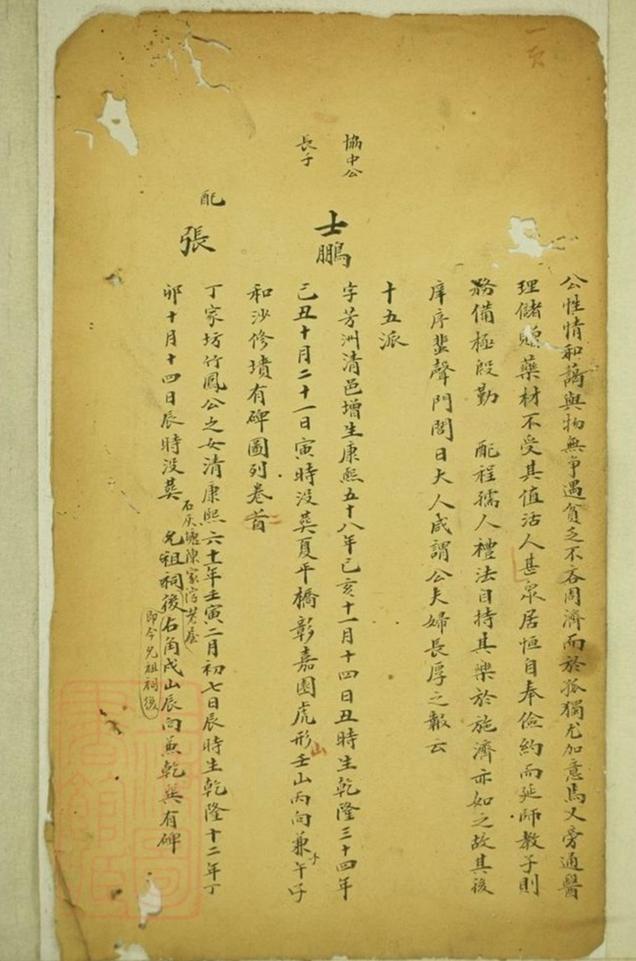 一頁
公性情和藹與物無爭遇貧乏不吝周濟而於孤獨尤加意焉又旁通醫
理儲贈藥材不受其值活人甚衆居恒自奉儉約而延師教子則
務備極殷勤 配程孺人禮法自持其樂於施濟亦如之故其後
庠序蜚聲門閭日大人咸謂公夫婦長厚之報云
十五派
協中公
長子
士鵬
字芳洲清邑增生康熙五十八年己亥十一月十四日丑時生乾隆三十四年
己丑十月二十一日寅時没葬夏平橋彰嘉園虎形山壬山丙向兼午子
和沙修墳有碑圖列卷首
配
張
丁家坊竹鳳公之女清康熙六十一年壬寅二月初七日辰時生乾隆十二年丁
卯十月十四日辰時没葬
石灰塘陳家
允祖祠後右角戌山辰向兼乾巽有碑
即今允祖祠後